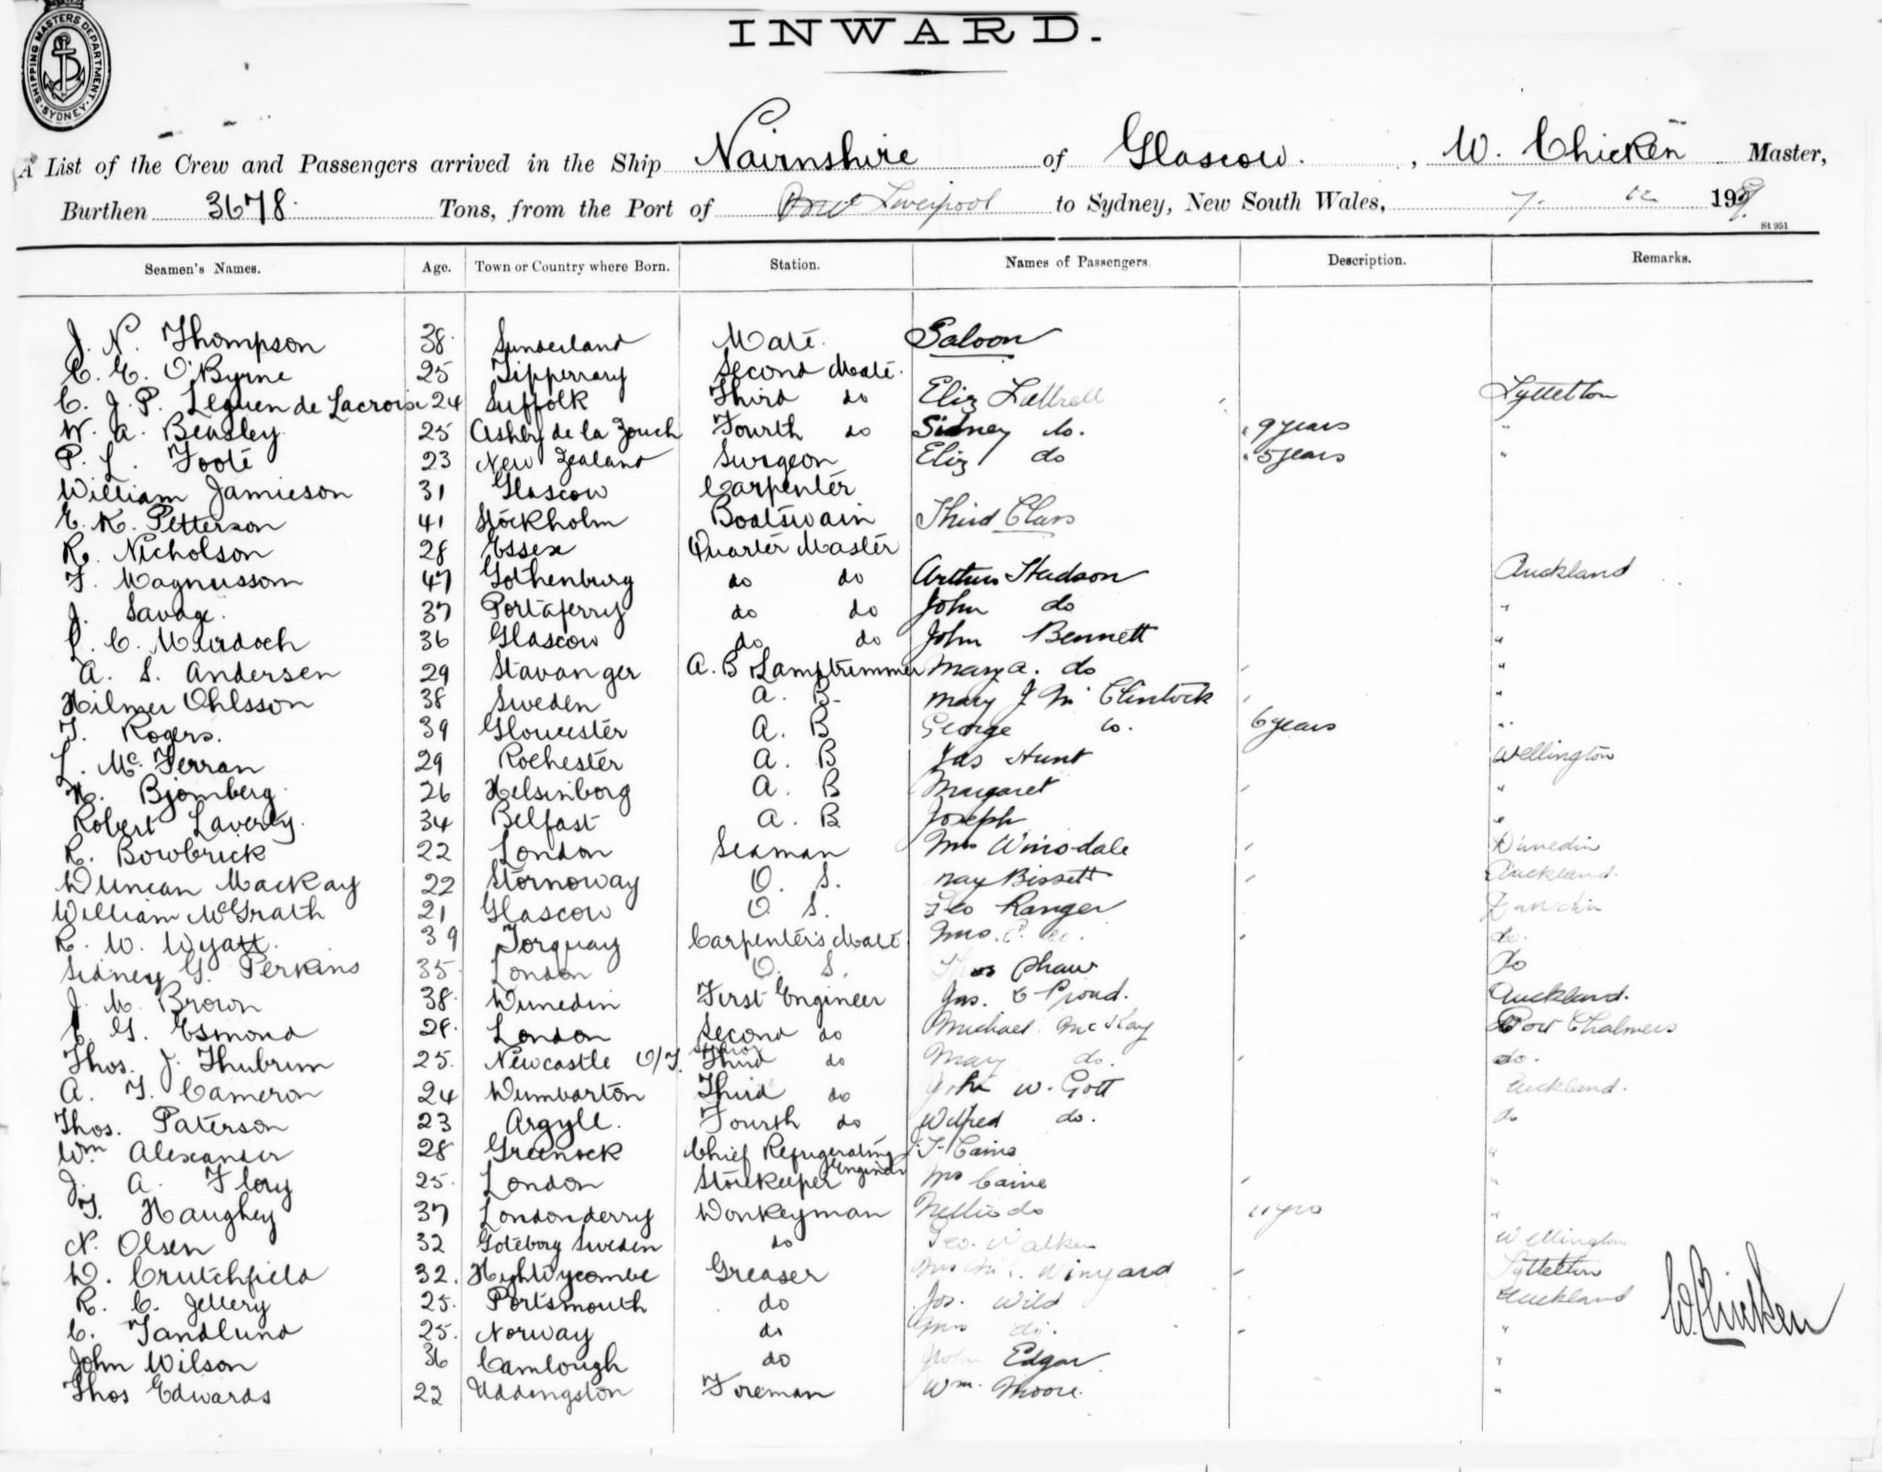 SHIPPING MASTERS DEPARTMENT. SYDNEY
INWARD.
A List of the Crew and Passengers arrived in the Ship Nairnshire of Glascow. , W. Chicken Master,
Burthen 3678. Tons, from the Port of Liverpool to Sydney, New South Wales, 7. 12 190
St 951
Seamen's Names. Age. Town or Country where Born. Station. Names of Passengers. Description. Remarks.
J. N. Thompson 38. Sunderland Mate. Saloon
C. E. O'Byrne 25 Tipperrary Second Mate.
C. J. P. Leguen de Lacroix 24 Suffolk Third do Eliz Luttrell Lyttelton
W. A. Beasley. 25 Ashby de la Zouch Fourth do Sidney do. 9 years "
P. L. Foote 23 New Zealand Surgeon Eliz do 5 years "
William Jamieson 31 Glascow Carpenter
E. K. Petterson 41 Stockholm Boatswain Third Class
R. Nicholson 28 Essex Quarter Master
F. Magnussom 47 Gothenburg do do Arthur Hudson Auckland
J. Savage. 37 Portaferry do do John do "
L. C. Murdoch 36 Glascow do do John Bennett "
A. S. Andersen 29 Stavanger A. B Lamptrimmer Mary A. do "
Hilmer Ohlsson 38 Sweden A. B. Mary J Mc Clintock "
T. Rogers. 39 Gloucester A. B George do. 6 years "
L. Mc Ferran 29 Rochester A. B Jas Hunt Wellington
N. Bjornberg. 26 Helsinborg A. B Margaret "
Robert Laverty. 34 Belfast A. B Joseph "
R. Bowbrick 22 London Seaman Mrs Dunedin
Duncan Mackay 22 Stornoway O. S. May Bissett Auckland.
William McGrath 21 Glascow O. S. Geo Ranger Dunedin
R. W. Wyatt. 39 Torquay Carpenter's Mate Mrs. do.
Sidney G. Perkins 35 London O. S. Thos Shaw do
J. M. Brown 38. Dunedin First Engineer Jas. Proud. Auckland.
C. G. Esmond 28. London Second do Michael McKay Port Chalmers
Thos. J. Thubrum 25. Newcastle O/T. Senior Third do Mary do. do.
A. T. Cameron 24 Dumbarton Third do John W. Gott Auckland.
Thos. Paterson 23 Argyll. Fourth do Wilfred do. do
Wm Alexander 28 Greenock Chief Refrigerating Engineer Cains "
J. A. Flory 25. London Storekeeper Mrs Caine "
T. Haughey 37 Londonderry Donkeyman Nellie do 11 yrs "
N. Olsen 32 Goteborg Sweden do Geo. Walker Wellington
D. Crutchfield 32. High Wycombe Greaser Winyard Lyttelton
R. C. Jellery 25. Portsmouth do Jos. Wild Auckland
C. Tandlund 25. Norway do Mrs do. "
John Wilson 36 Camlough do John Edgar "
Thos Edwards 22 Uddingston Foreman Wm. Moore. "
W Chicken